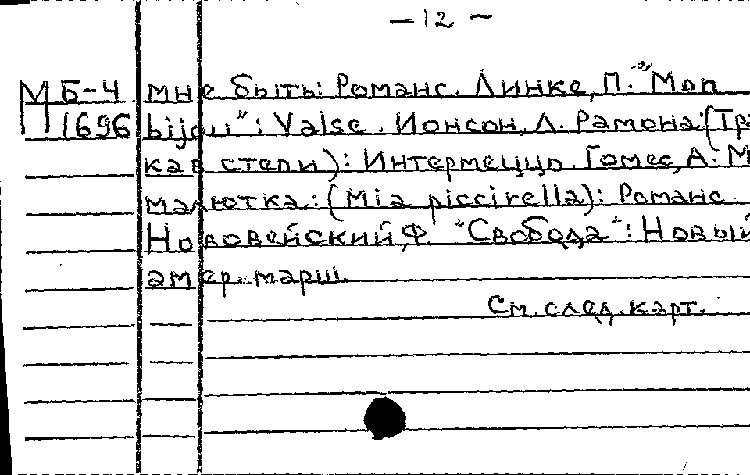 — 12 —
МБ-4 мне быть: Романс. Линке, П. "Mon
1696 bijou": Valse. Ионсон, Л. Рамона: (Тра
ка в степи): Интермеццо. Гомес, А. М
малютка: (Mia piccirella): Романс.
Нововейский, Ф. "Свобода": Новый
амер. марш.
См. след. карт.